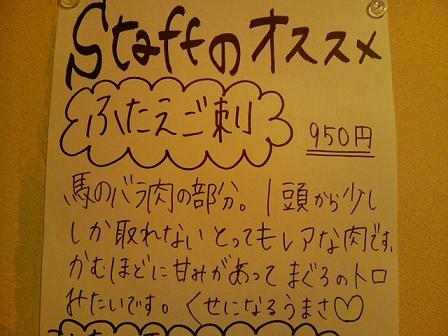 Staffのオススメ
ふたえご刺
950円
馬のバラ肉の部分。1頭から少し
しか取れないとってもレアな肉です。
かむほどに甘みがあってまぐろのトロ
みたいです。くせになるうまさ♡